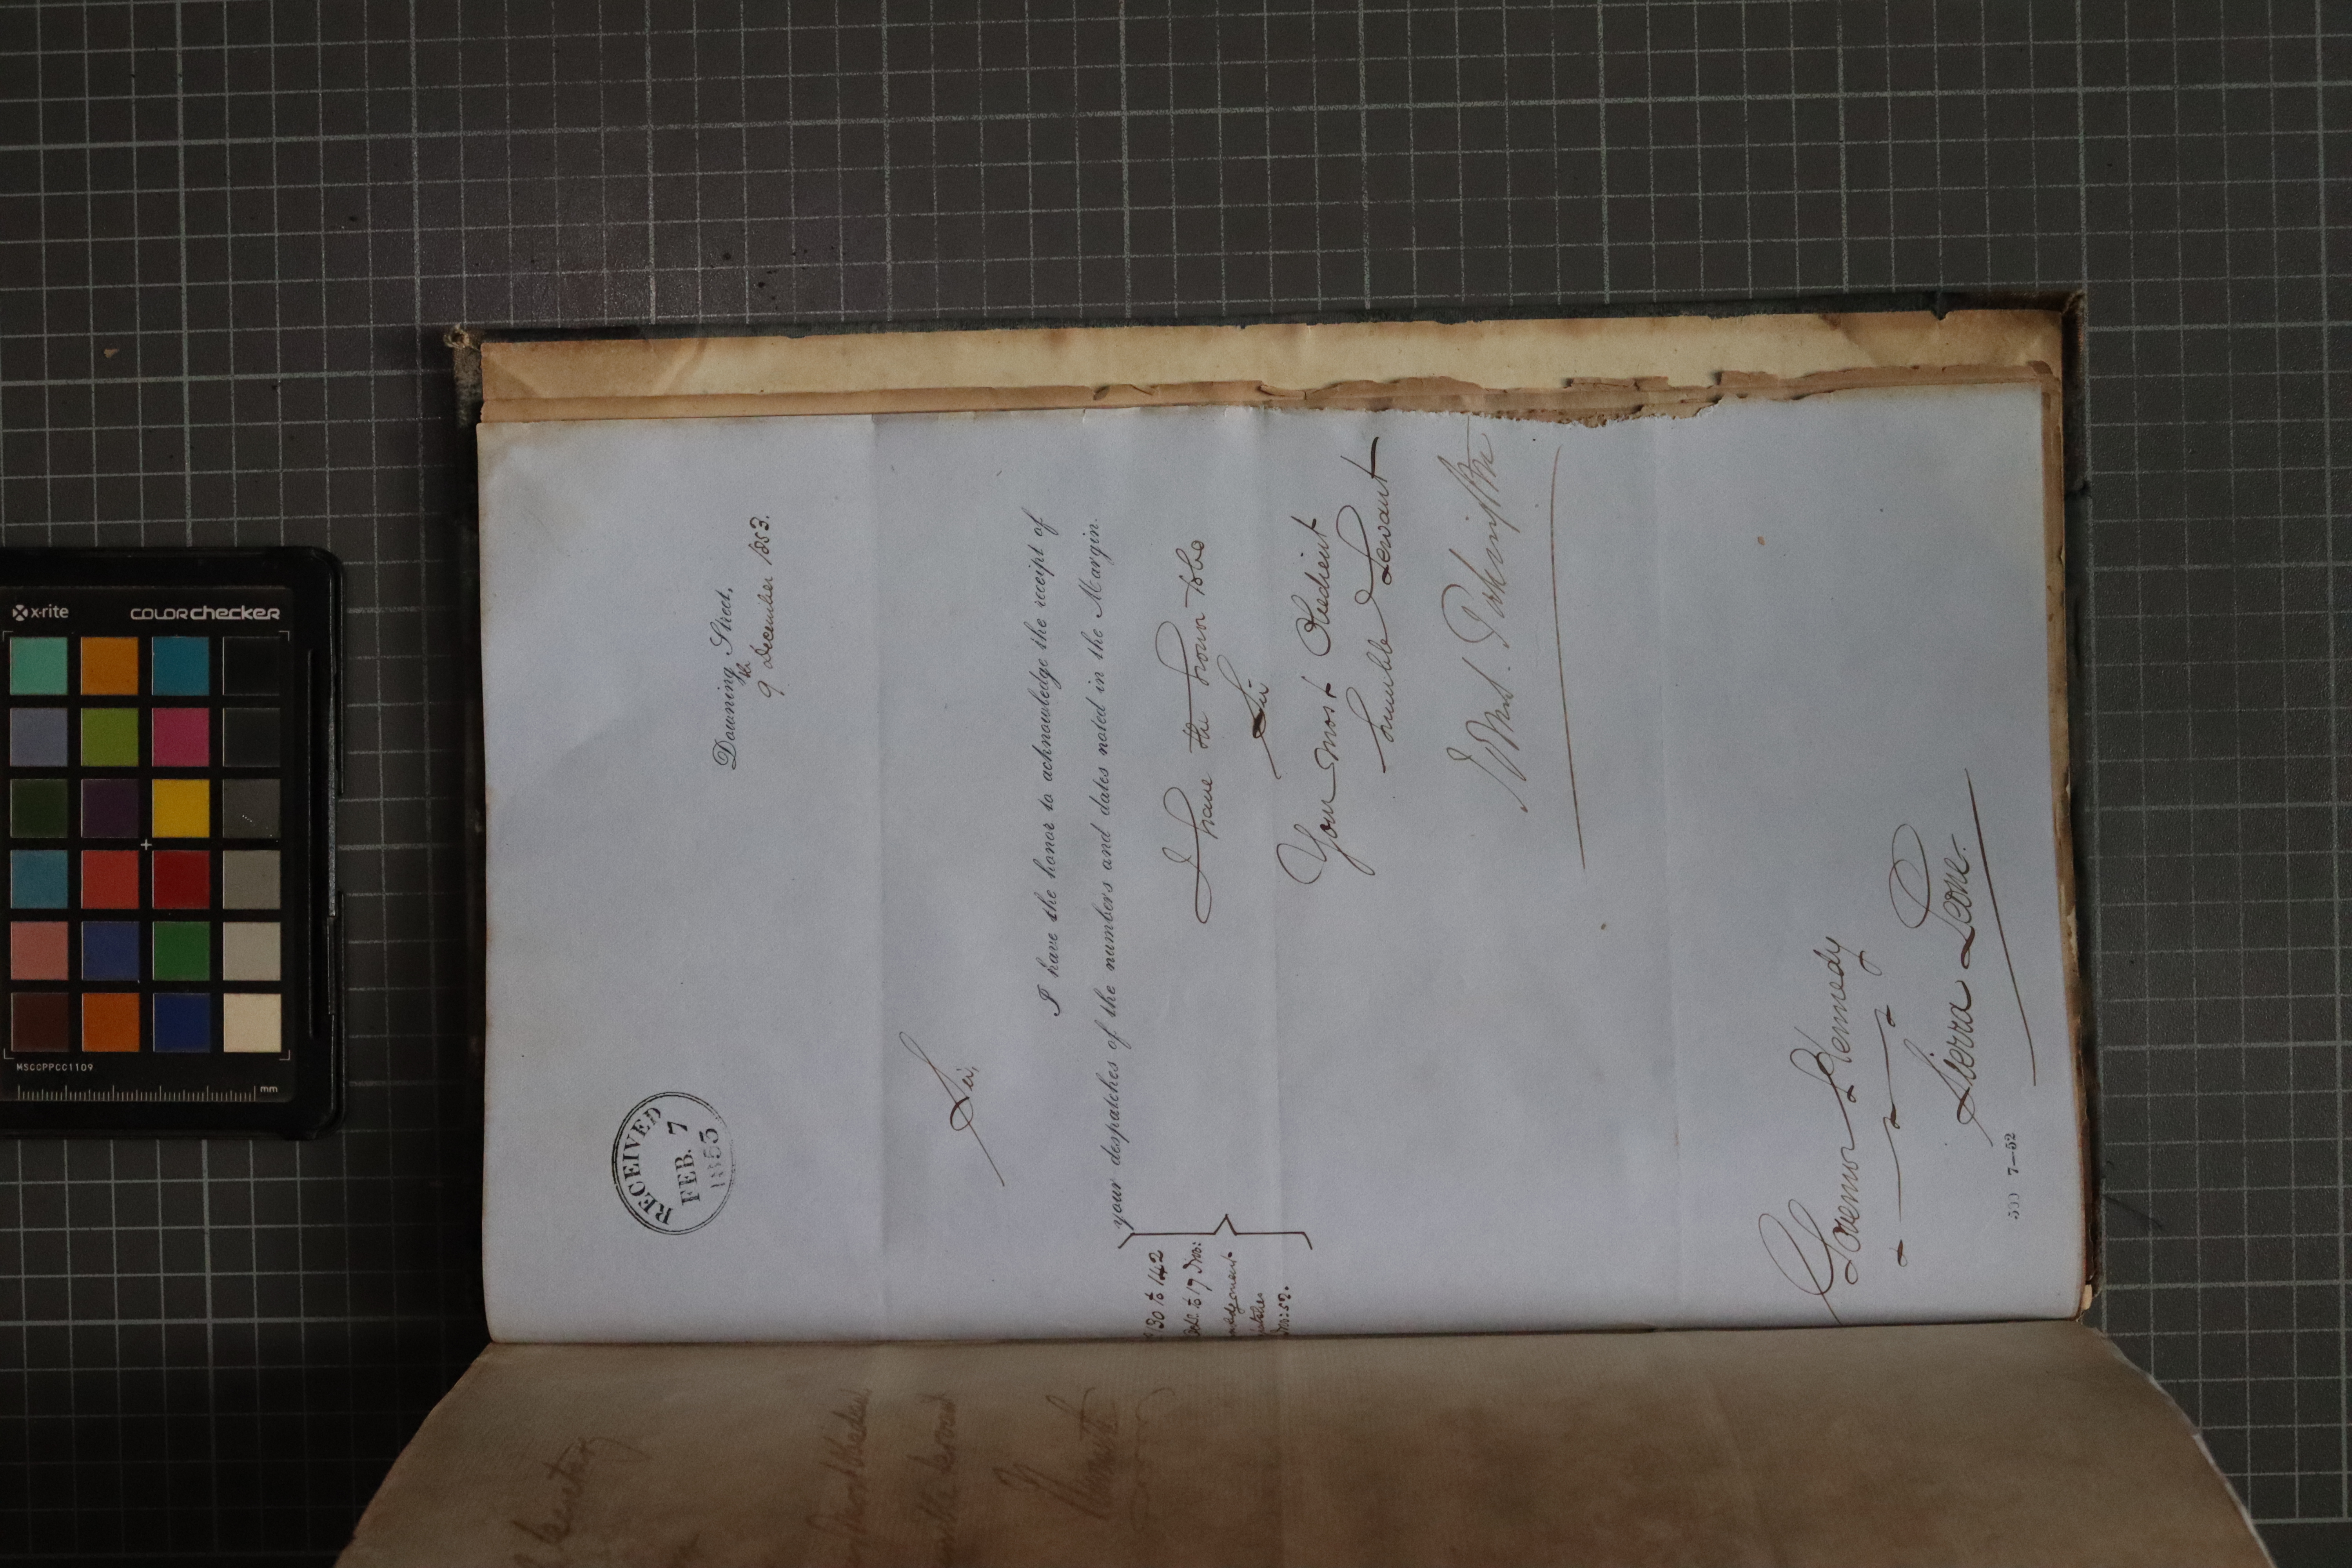 RECEIVED
FEB. 7
1853
Downing Street,
9th December 1853.
Sir,
I have the honor to acknowledge the receipt of
your despatches of the numbers and dates noted in the Margin.
130 to 142
Oct. to 17 Nov:
Nov: 52.
I have the honor to be
Sir
Your most Obedient
humble Servant
John S. Pakington
Governor Kennedy
Sierra Leone.
500 7—52
x-rite
colorchecker
MSCCPPCC1109
mm